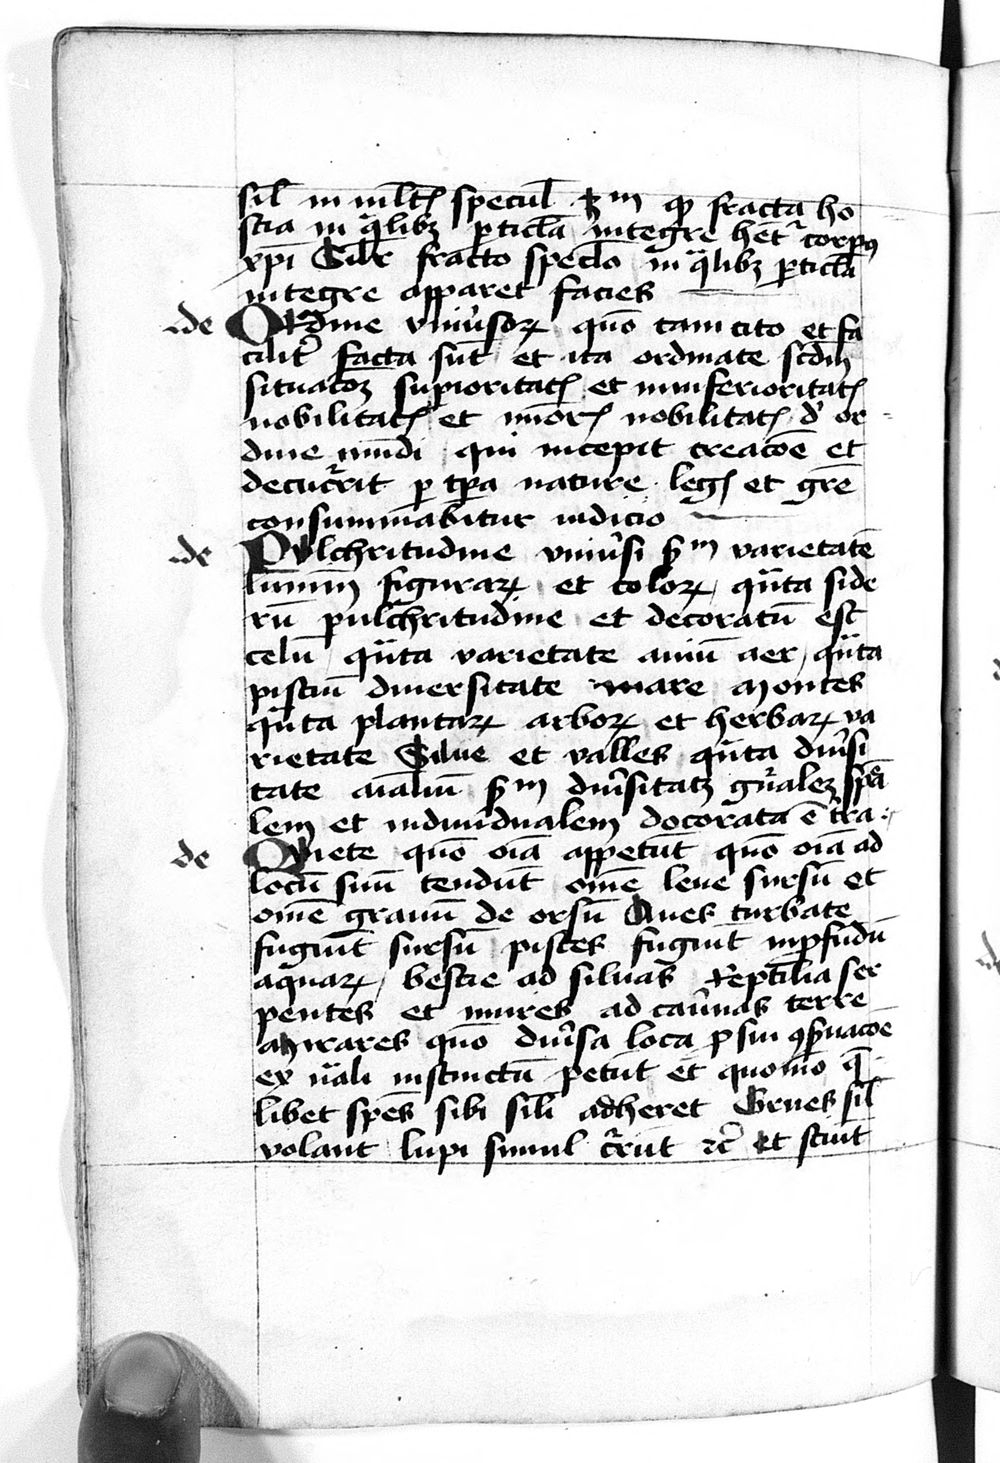 sil' in ml't' specul' ꝫm qꝫ fracta ho
stia in q̄libꝫ pticl'a integre het' corpꝯ
xp̄i Silr fracto specl'o in q̄libꝫ pticl'a
integre apparet facies
de Ordine vniu'soꝝ quō tam cito et fa
cilit' facta sūt et ita ordinate scd'm
situacōꝫ sup̄ioritat' et inniferioritat'
nobilitat' et mīor' nobilitat' d' or
dine mūdi qui incepit creacōe et
decucr'rit p tp̄a nature leg' et grē
consummabitur iudicio
de Pvlchritudine vniu'si sm varietatē
lūinū figuraꝝ et coloꝝ qūta side
rū pulchritudine et decoratū est
celū qūta varietate auiū aer qūta
pisciū diuersitate mare montes
qūta plantaꝝ arboꝝ et herbaꝝ va
rietate Silue et valles qūta diu'si
tate aīaliū sm diu'sitatꝫ gn'alēꝫ sp̄ea
lem et indiuidualem docorata ē t'ra
de Qviete quō oīa appetūt quō oīa ad
locū suū tendūt omē leue sursū et
omē grauū de orsū Aues turbate
fugiūt sursū pisces fugiūt in pfūdū
aquaꝝ bestie ad siluas Reptilia ser
pentes et mures ad cau'nas terre
quō diu'sa loca p sui ꝯs'uacōe
ex nāli instinctū petūt et quomō q̄
libet spēs sibi sili adheret Grues sil'
volant lupi simul cr'rūt ⁊c' et sciūt